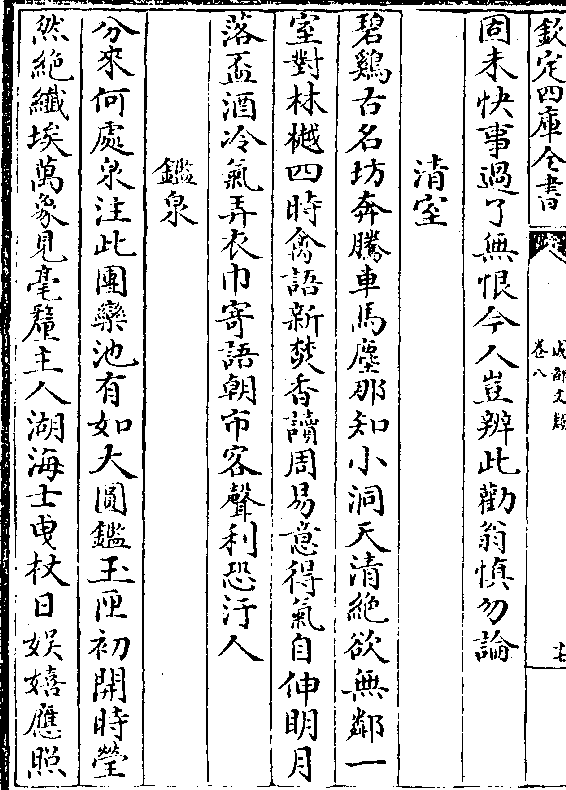 欽定四庫全書
成都文類
卷八
十七
固未快事過了無恨今人豈辨此勸翁慎勿論
清室
碧鷄古名坊奔騰車馬塵那知小洞天清絶欲無鄰一
室對林樾四時禽語新焚香讀周易意得氣自伸明月
落盃酒冷氣弄衣巾寄語朝市客聲利恐汙人
鑑泉
分來何處泉注此團欒池有如大圓鑑玉匣初開時瑩
然絶纖埃萬象見毫釐主人湖海士曳杖日娱嬉應照